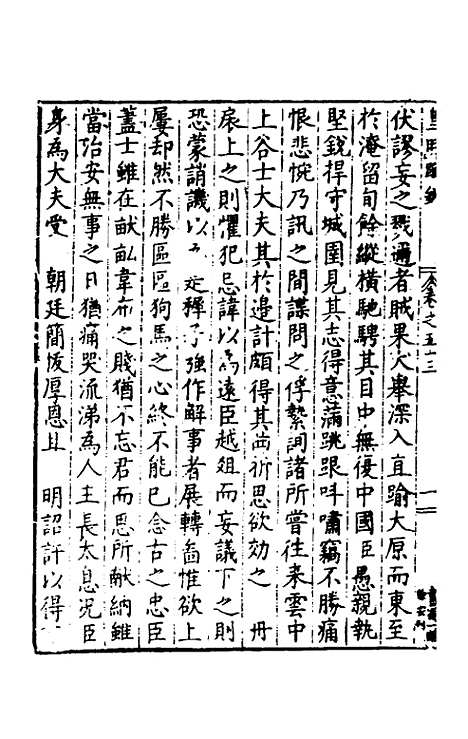 卷之五十三
伏謬妄之戮邇者賊果大舉深入直踰大原而東至
於淹留旬餘縱橫馳騁其目中無復中國臣愚親執
堅銳捍守城圍見其志得意滿跳踉呌嘯竊不勝痛
恨悲惋乃訊之間諜問之俘縶詢諸所嘗往来雲中
上谷士大夫其於邊計頗得其一二思欲効之 丹
扆上之則懼犯忌諱以為遠臣越俎而妄議下之則
恐蒙誚譏以為 強作解事者展轉啚惟欲上
屢却然不勝區區狗馬之心終不能已念古之忠臣
藎士雖在畎畝韋布之賤猶不忘君而思所献納雖
當治安無事之日猶痛哭流涕為人主長太息况臣
身為大夫受 朝廷簡恢厚恩且 明詔許以得